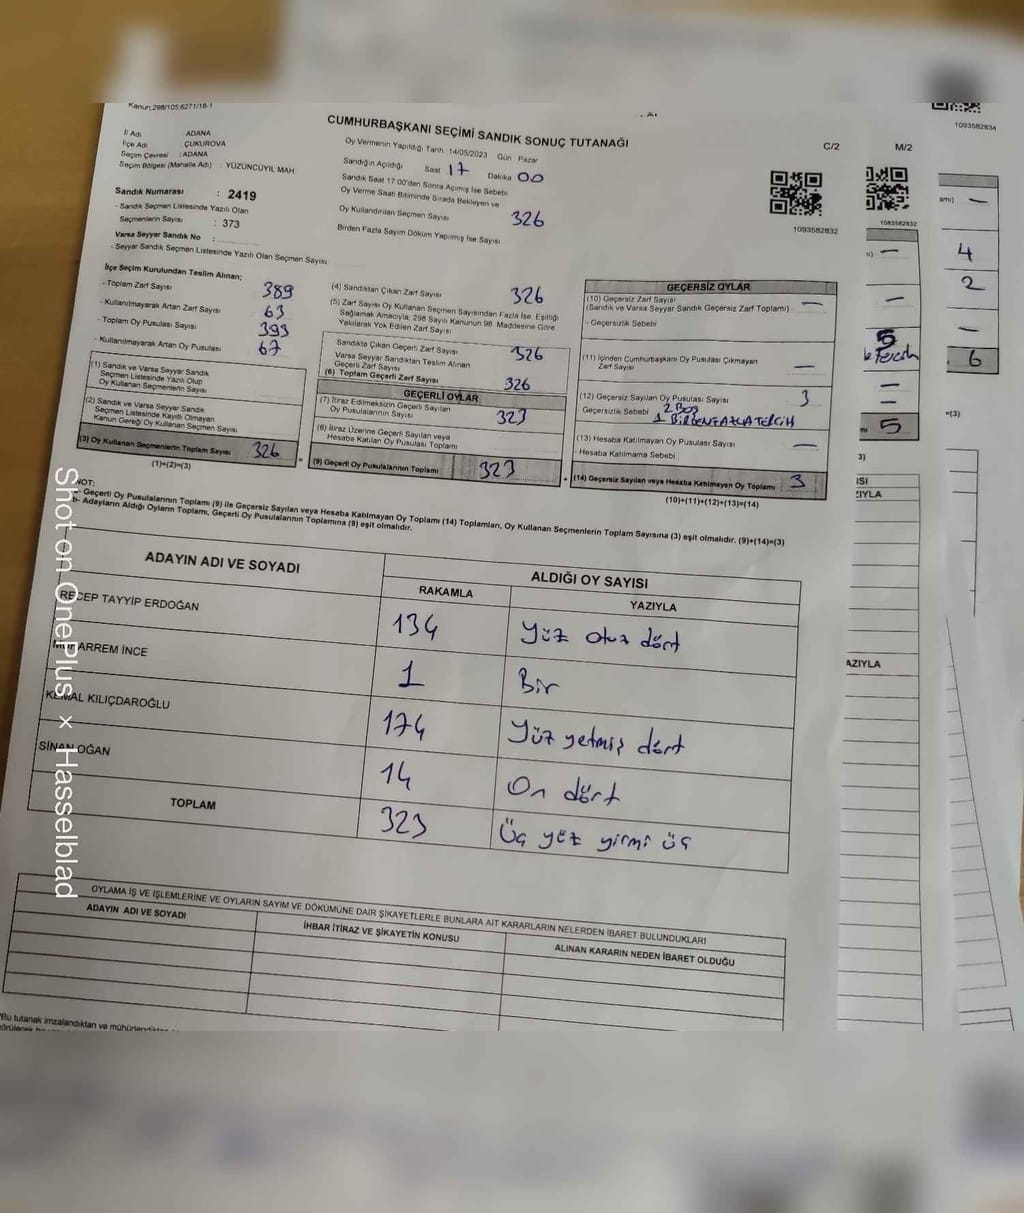 Kanun;298/105,6271/18-1
CUMHURBAŞKANI SEÇİMİ SANDIK SONUÇ TUTANAĞI
C/2
M/2
1093582834
İl Adı ADANA
İlçe Adı ÇUKUROVA
Seçim Çevresi : ADANA
Seçim Bölgesi (Mahalle Adı) : YÜZÜNCÜYIL MAH
Oy Vermenin Yapıldığı Tarih : 14/05/2023 Gün : Pazar
Sandığın Açıldığı Saat 17 Dakika 00
Sandık Saat 17:00'den Sonra Açılmış İse Sebebi
Oy Verme Saati Bitiminde Sırada Bekleyen ve
Oy Kullandırılan Seçmen Sayısı 326
Birden Fazla Sayım Döküm Yapılmış İse Sayısı
1093582832
1083582832
Sandık Numarası : 2419
- Sandık Seçmen Listesinde Yazılı Olan
Seçmenlerin Sayısı : 373
Varsa Seyyar Sandık No :
- Seyyar Sandık Seçmen Listesinde Yazılı Olan Seçmen Sayısı
İlçe Seçim Kurulundan Teslim Alınan;
- Toplam Zarf Sayısı 389
- Kullanılmayarak Artan Zarf Sayısı 63
- Toplam Oy Pusulası Sayısı 393
- Kullanılmayarak Artan Oy Pusulası 67
(1) Sandık ve Varsa Seyyar Sandık
Seçmen Listesinde Yazılı Olup
Oy Kullanan Seçmenlerin Sayısı
(2) Sandık ve Varsa Seyyar Sandık
Seçmen Listesinde Kayıtlı Olmayan
Kanun Gereği Oy Kullanan Seçmen Sayısı
(3) Oy Kullanan Seçmenlerin Toplam Sayısı 326
(1)+(2)=(3)
(4) Sandıktan Çıkan Zarf Sayısı 326
(5) Zarf Sayısı Oy Kullanan Seçmen Sayısından Fazla İse, Eşitliği
Sağlamak Amacıyla; 298 Sayılı Kanunun 98. Maddesine Göre
Yakılarak Yok Edilen Zarf Sayısı
Sandıkta Çıkan Geçerli Zarf Sayısı 326
Varsa Seyyar Sandıktan Teslim Alınan
Geçerli Zarf Sayısı
(6) Toplam Geçerli Zarf Sayısı 326
GEÇERLİ OYLAR
(7) İtiraz Edilmeksizin Geçerli Sayılan
Oy Pusulalarının Sayısı 323
(8) İtiraz Üzerine Geçerli Sayılan veya
Hesaba Katılan Oy Pusulası Toplamı
(9) Geçerli Oy Pusulalarının Toplamı 323
GEÇERSİZ OYLAR
(10) Geçersiz Zarf Sayısı —
(Sandık ve Varsa Seyyar Sandık Geçersiz Zarf Toplamı)
- Geçersizlik Sebebi
(11) İçinden Cumhurbaşkanı Oy Pusulası Çıkmayan
Zarf Sayısı —
(12) Geçersiz Sayılan Oy Pusulası Sayısı 3
Geçersizlik Sebebi 2 Boş
1 BİRDEN FAZLA TERCİH
(13) Hesaba Katılmayan Oy Pusulası Sayısı —
- Hesaba Katılmama Sebebi
(14) Geçersiz Sayılan veya Hesaba Katılmayan Oy Toplamı 3
(10)+(11)+(12)+(13)=(14)
NOT:
a- Geçerli Oy Pusulalarının Toplamı (9) ile Geçersiz Sayılan veya Hesaba Katılmayan Oy Toplamı (14) Toplamları, Oy Kullanan Seçmenlerin Toplam Sayısına (3) eşit olmalıdır. (9)+(14)=(3)
b- Adayların Aldığı Oyların Toplamı, Geçerli Oy Pusulalarının Toplamına (9) eşit olmalıdır.
ADAYIN ADI VE SOYADI
ALDIĞI OY SAYISI
RAKAMLA YAZIYLA
RECEP TAYYİP ERDOĞAN 134 Yüz otuz dört
MUHARREM İNCE 1 Bir
KEMAL KILIÇDAROĞLU 174 Yüz yetmiş dört
SİNAN OĞAN 14 On dört
TOPLAM 323 Üç yüz yirmi üç
OYLAMA İŞ VE İŞLEMLERİNE VE OYLARIN SAYIM VE DÖKÜMÜNE DAİR ŞİKAYETLERLE BUNLARA AİT KARARLARIN NELERDEN İBARET BULUNDUKLARI
ADAYIN ADI VE SOYADI
İHBAR İTİRAZ VE ŞİKAYETİN KONUSU
ALINAN KARARIN NEDEN İBARET OLDUĞU
*Bu tutanak imzalandıktan ve
4
2
—
6
5
Tercih
5
=(3)
AZIYLA
Shot on OnePlus × Hasselblad